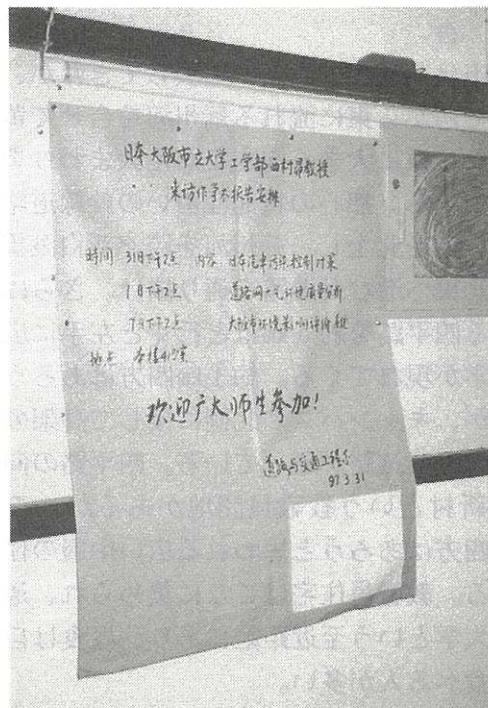 日本大阪市立大学工学部西村昂教授
来访作学术报告安排
时间 31日下午2点 内容 日本汽车污染控制对策
1日下午2点 道路网大气环境质量分析
7日下午2点 大阪市环境影响评价
地点
欢迎广大师生参加!
道路与交通工程系
97.3.31